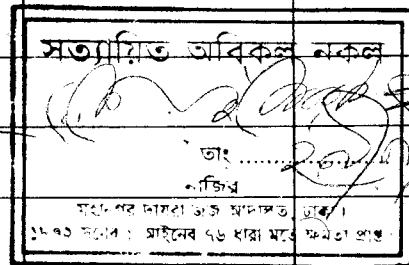 সত্যায়িত অবিকল নকল
তাং ..............
নাজির
মহানগর দায়রা জজ আদালত, ঢাকা।
১৮৭২ সনের ১ আইনের ৭৬ ধারা মতে ক্ষমতা প্রাপ্ত